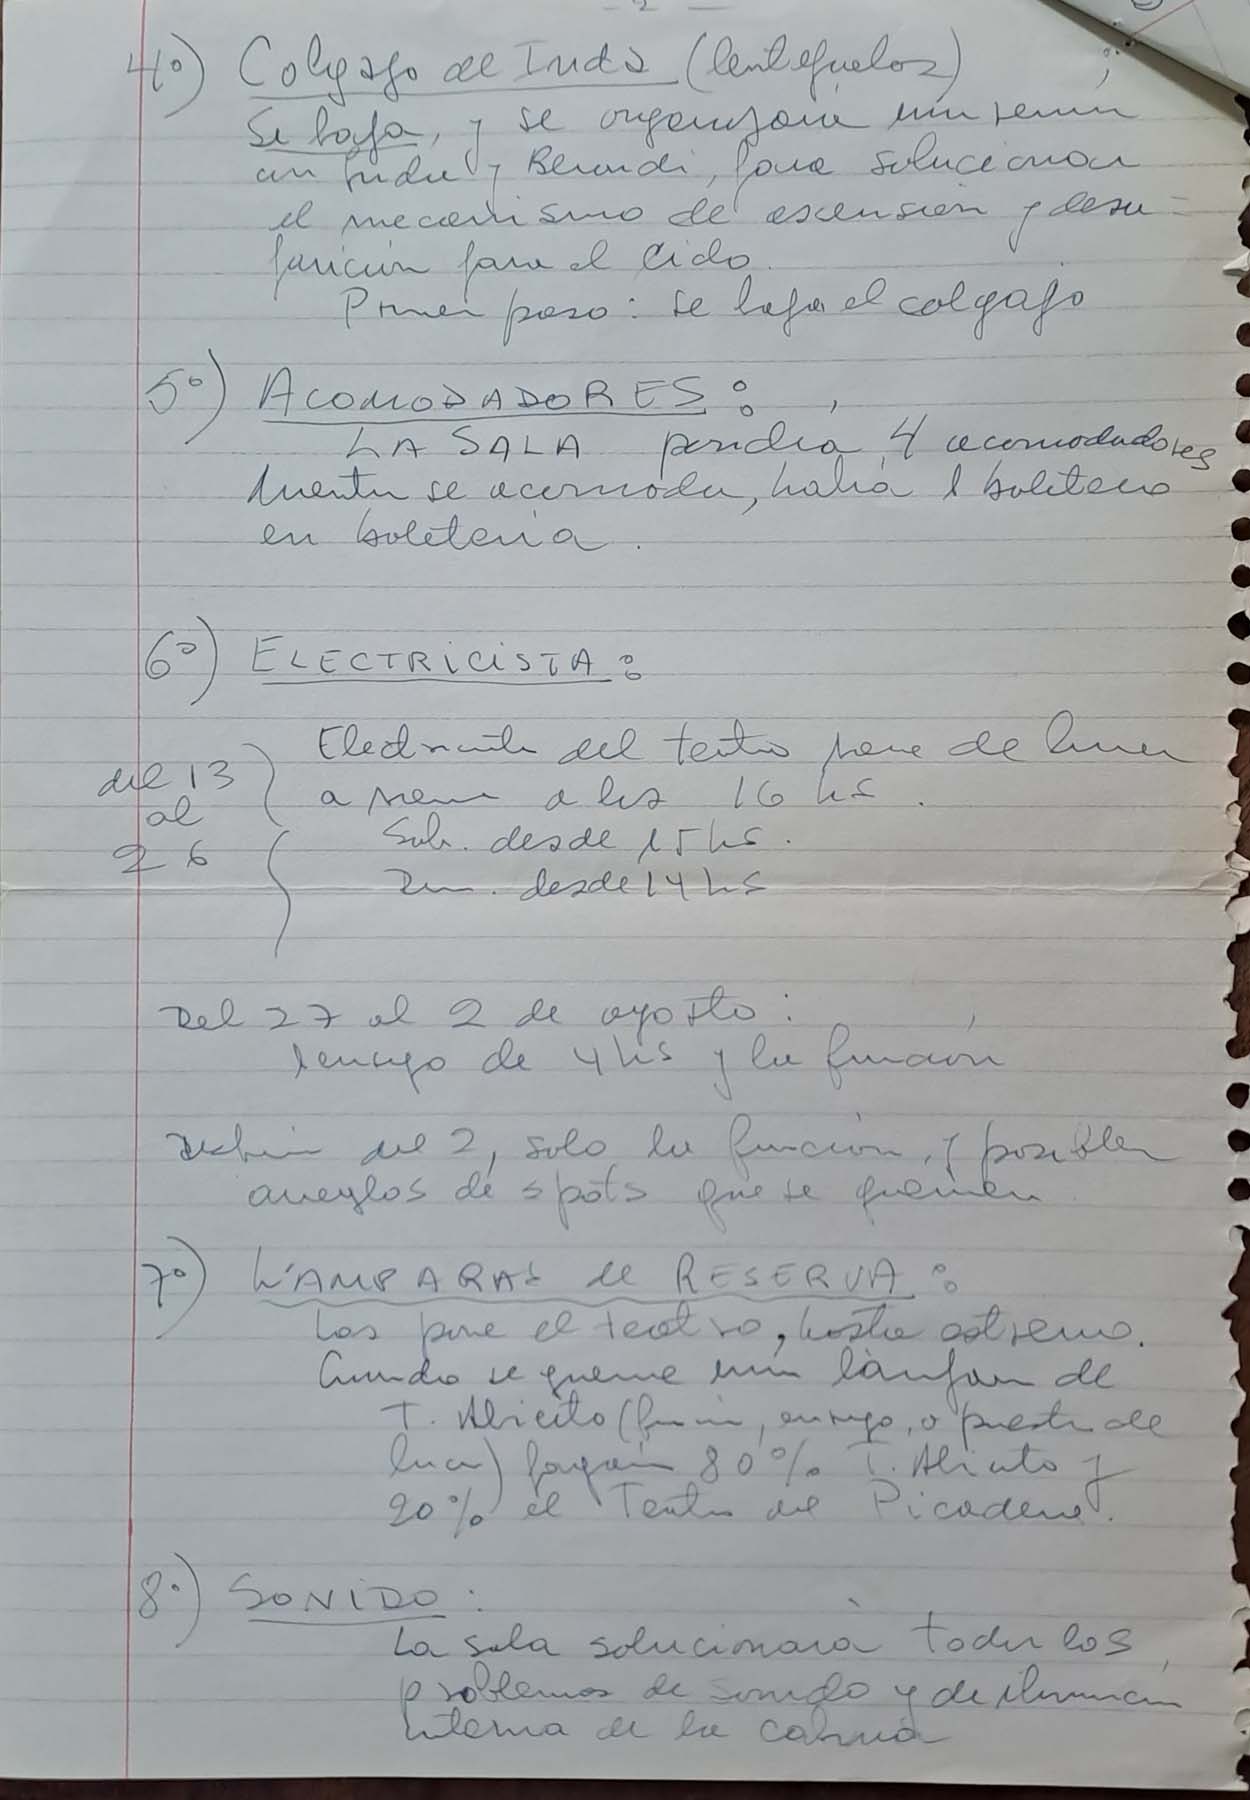 - 2 -
4º) Colgajo de Indà (lentejuelas)
Se baja, y se organizará una reunión
con Indà y Berardi, para solucionar
el mecanismo de ascensión y desa=
parición para el Ciclo.
Primer paso: se baja el colgajo
5º) ACOMODADORES:
LA SALA pondrá 4 acomodadores
Mientras se acomoda, habrá 1 boletero
en boletería.
6º) ELECTRICISTA:
Electricista del teatro pone de lunes
a viernes a las 16 hs.
del 13
al
26
Sab. desde 15 hs.
Dom. desde 14 hs
Del 27 al 2 de agosto:
1 ensayo de 4 hs y la función
Después del 2, solo la función, y posibles
arreglos de spots que se quemen
7º) LAMPARAS de RESERVA:
Las pone el teatro, hasta estreno.
Cuando se queme una lámpara de
T. Abierto (función, ensayo, o puesta de
luces) pagarán 80% T. Abierto y
20% el Teatro del Picadero.
8º) SONIDO:
La sala solucionará todos los
problemas de sonido y de iluminación
interna de la cabina